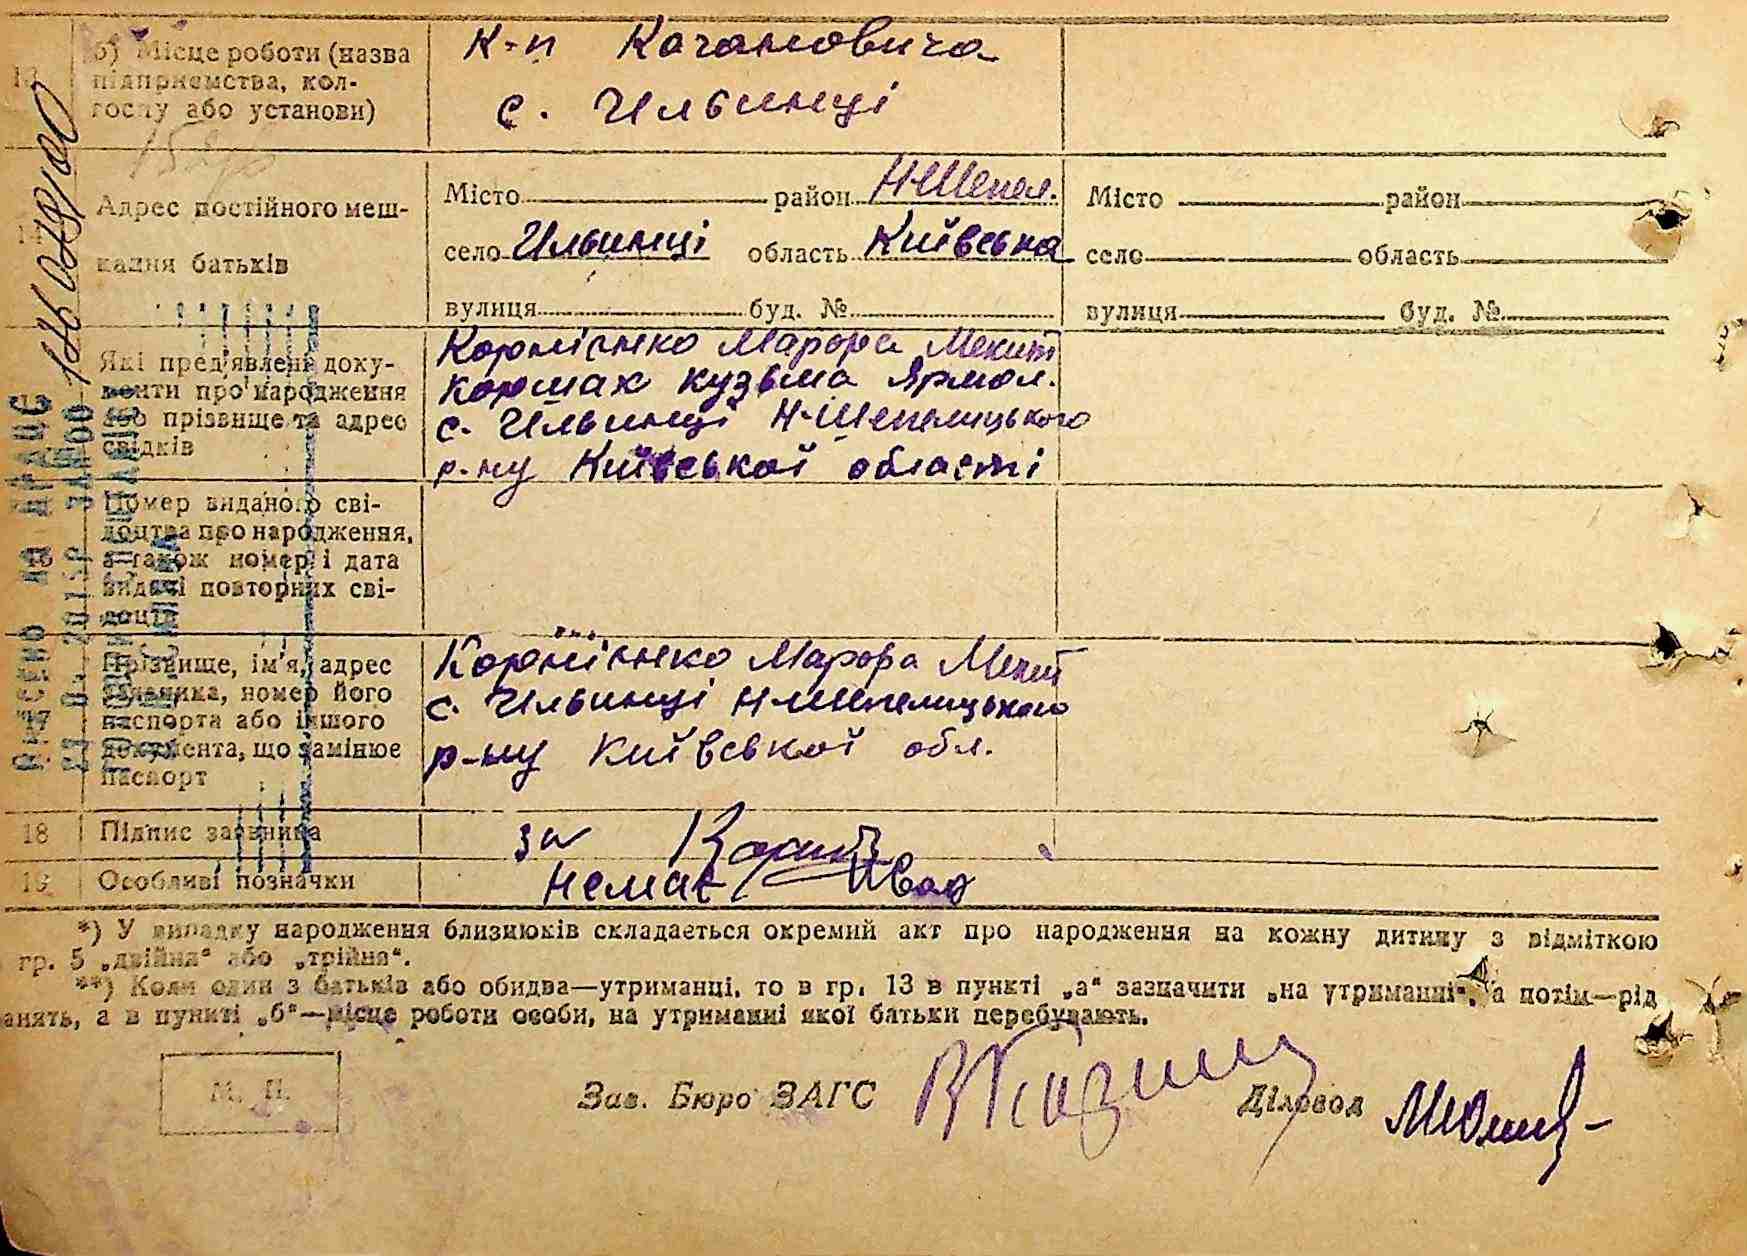 13
б) Місце роботи (назва підприємства, кол-
госпу або установи)
К-п Качановича
с. Ильинці
14
Адрес постійного меш-
кання батьків
Місто район Н-Шепел.
село Ильинці область Київська
вулиця буд. №
Місто район
село область
вулиця буд. №
Які пред'явлені доку-
менти про народження
або прізвище та адрес
свідків
Корнієнко Марфа Мекит
Кормак Кузьма Ярмол.
с. Ильинці Н-Шепелицького
р-ну Київської області
16
Номер виданого сві-
доцтва про народження,
а також номер і дата
видачі повторних сві-
доцтв
17
Прізвище, ім'я, адрес
заявника, номер його
паспорта або іншого
документа, що замінює
паспорт
Корнієнко Марфа Мекит
с. Ильинці Н-Шепелицького
р-ну Київської обл.
18
Підпис заявника
за
19
Особливі позначки
немає
*) У випадку народження близнюків складається окремий акт про народження на кожну дитину з відміткою
гр. 5 „двійня“ або „трійня“.
**) Коли один з батьків або обидва—утриманці, то в гр. 13 в пункті „а“ зазначити „на утриманні“, а потім—рід
анять, а в пункті „б“—місце роботи особи, на утриманні якої батьки перебувають.
М. П.
Зав. Бюро ЗАГС
Діловод